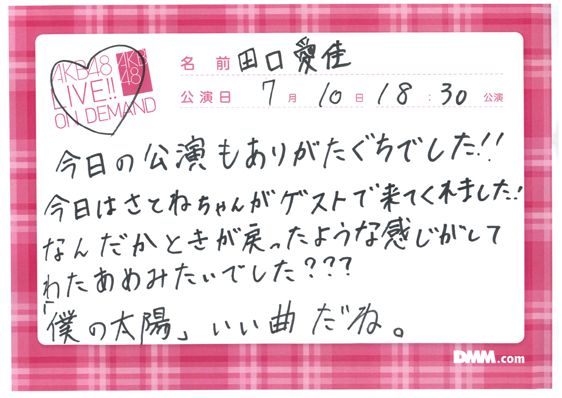 AKB48
LIVE!!
ON DEMAND
AKB
48
名前 田口愛佳
公演日 7月10日 18:30公演
今日の公演もありがたぐちでした!!
今日はさとねちゃんがゲストで来てくれました!
なんだかときが戻ったような感じがして
わたあめみたぃでした???
「僕の太陽」いい曲だね。
DMM.com